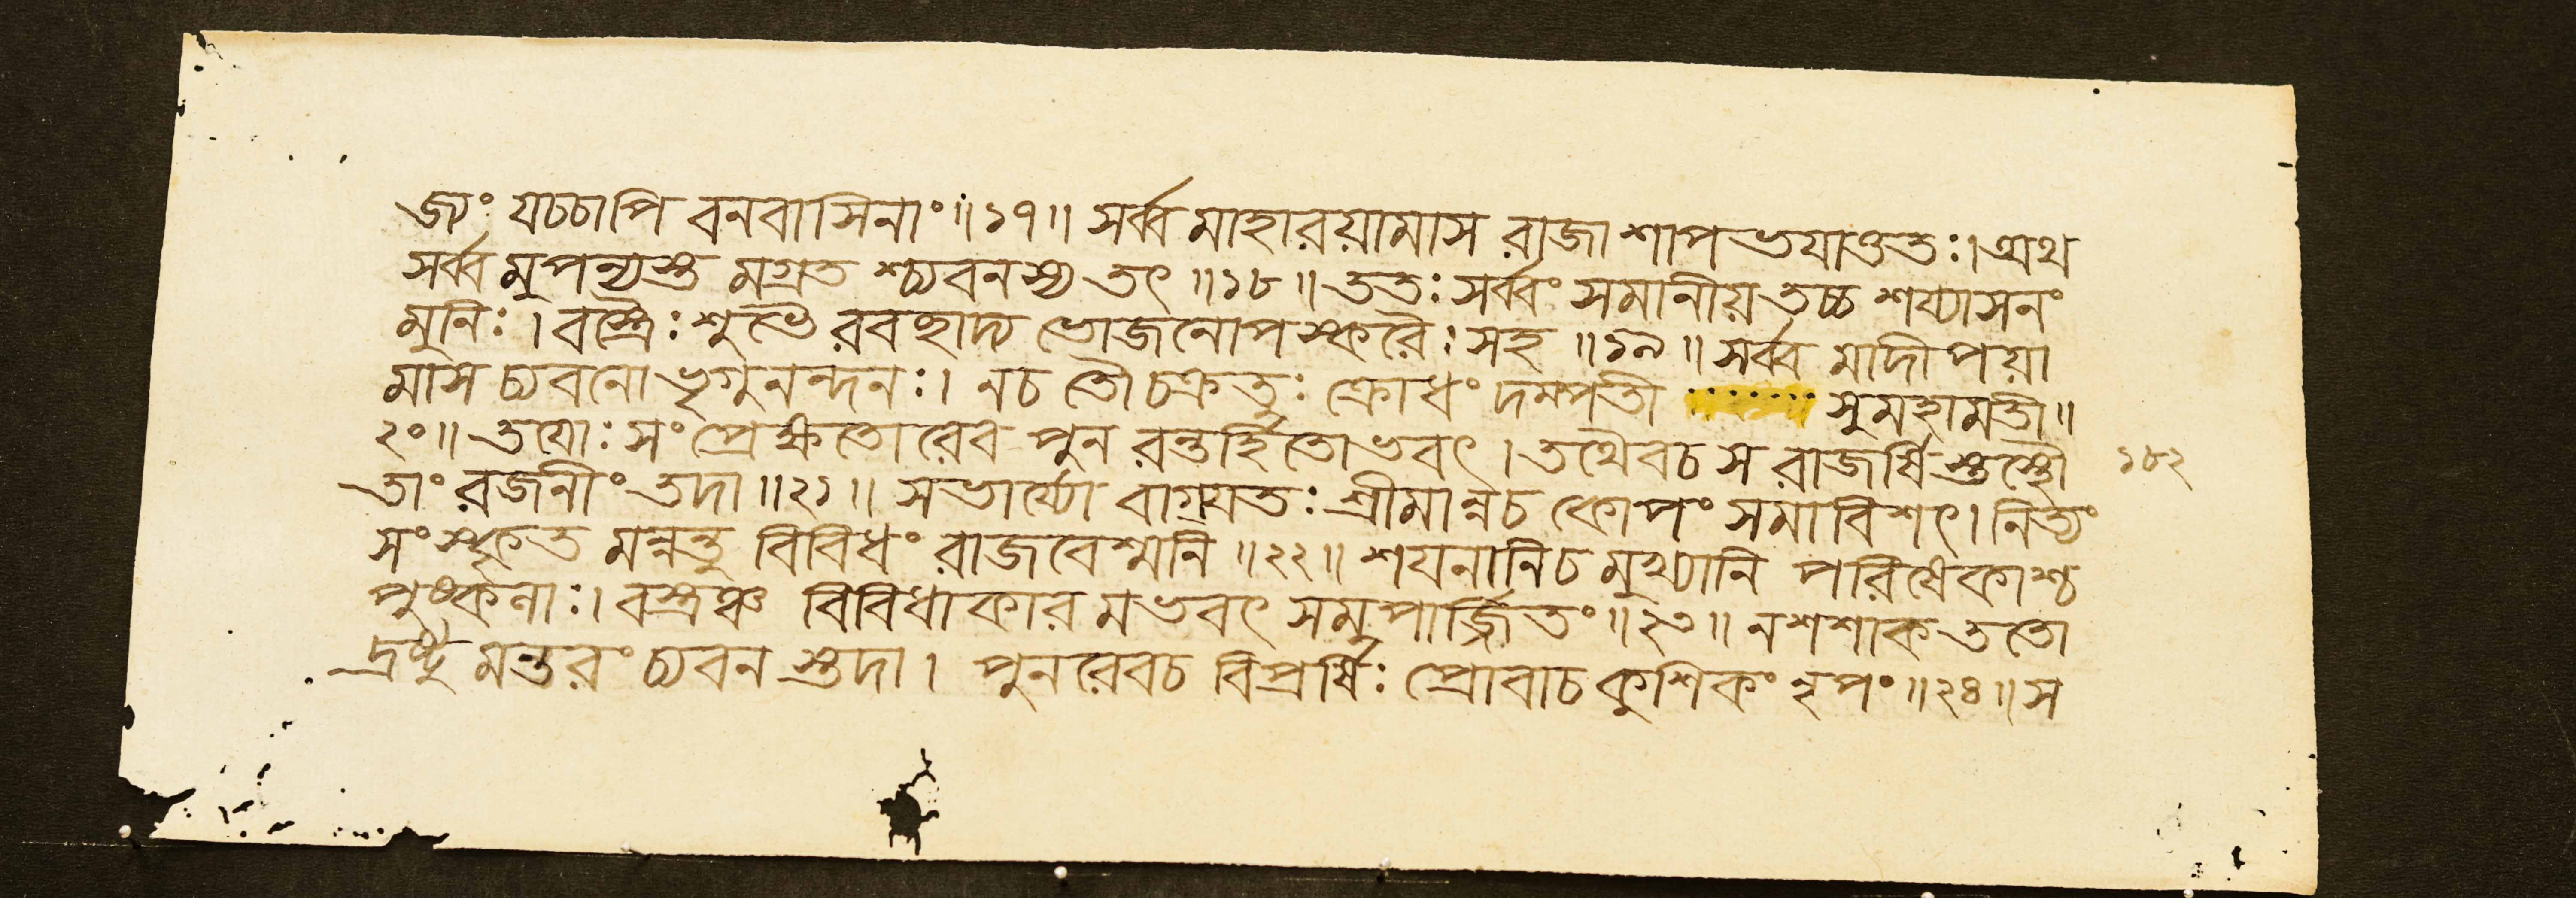 জ্যং যচ্চাপি বনবাসিনাং॥১৭॥ সর্ব্ব মাহারয়ামাস রাজা শাপ ভযাত্তত:।অথ
সর্ব্ব মুপন্যস্ত মগ্রত শ্চ্যবনস্য তৎ ॥১৮॥ ততঃ সর্ব্বং সমানীয় তচ্চ শয্যাসনং
মুনিঃ। বস্ত্রৈঃ শুভৈ রবছাদ্য ভোজনোপস্করৈঃ সহ ॥১৯॥ সর্ব্ব মাদীপয়া
মাস চ্যবনো ভৃগুনন্দনঃ। নচ তৌ চক্রতুঃ ক্রোধং দম্পতী সুমহামতী॥
২০॥ তযোঃ সংপ্রেক্ষতো রেব পুন রন্তর্হিতোভবৎ। তথৈবচ স রাজর্ষি স্তস্থৌ
তাং রজনীং তদা॥২১॥ সভার্য্যো বাগ্র্যযতঃ শ্রীমান্নচ কোপং সমাবিশৎ। নিত্যং
সংস্কৃত মন্নন্তু বিবিধং রাজবেশ্মনি ॥২২॥ শযনানিচ মুখ্যানি পরিষেকাশ্চ
পুষ্কনাঃ। বস্ত্রঞ্চ বিবিধাকার মভবৎ সমুপার্জ্জিতং॥২৩॥ নশশাক ততো
দ্রষ্টু মন্তরং চ্যবন স্তদা। পুনরেবচ বিপ্রর্ষিঃ প্রোবাচ কুশিকং নৃপং॥২৪॥ স
১৮২